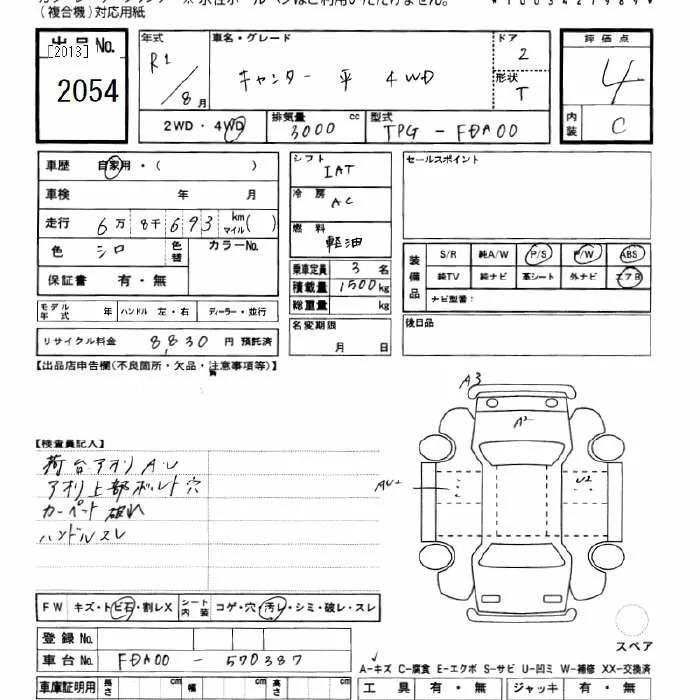 (複合機)対応用紙
出品No. 年式 車名・グレード ドア 評価点
[2013] R1/8月 キャンター 平 4WD 2 4
2054 形状 T
2WD・4WD 排気量 3000 cc 型式 TPG-FDA00 内装 C
車歴 自家用・( ) シフト IAT セールスポイント
車検 年 月 冷房 AC
走行 6万8千693 km マイル( ) 燃料 軽油
色 シロ 色替 カラーNo.
保証書 有・無 乗車定員 3名
積載量 1500kg
総重量 kg
装備品 S/R 純A/W P/S P/W ABS
純TV 純ナビ 革シート 外ナビ エアB
ナビ型番:
モデル年式 年 ハンドル 左・右 ディーラー・並行
名変期限 月 日
後日品
リサイクル料金 8,830 円 預託済
【出品店申告欄(不良箇所・欠品・注意事項等)】
A3
A2
【検査員記入】
荷台アオリAU
アオリ上部ボルト穴
カーペット破れ
ハンドルスレ
AU2
U2
FW キズ・トビ石・割レX シート内装 コゲ・穴・汚レ・シミ・破レ・スレ
登録No.
車台No. FDA00-570387
スペア
A-キズ C-腐食 E-エクボ S-サビ U-凹ミ W-補修 XX-交換済
車庫証明用 長さ cm 幅 cm 高さ cm 工具 有・無 ジャッキ 有・無